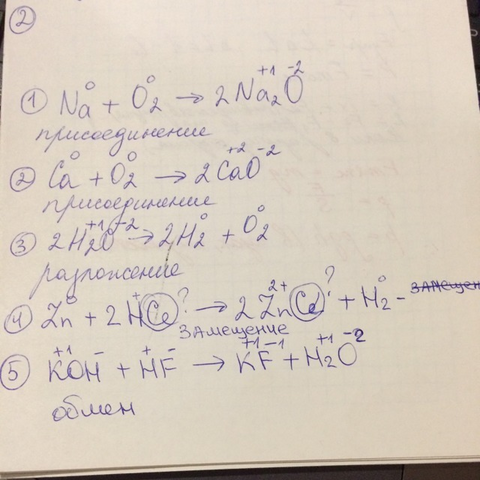 ②
① Na⁰ + O₂⁰ → 2Na₂⁺¹O⁻²
присоединение
② Ca⁰ + O₂⁰ → 2Ca⁺²O⁻²
присоединение
③ 2H₂⁺¹O⁻² → 2H₂⁰ + O₂⁰
разложение
④ Zn⁰ + 2H⁺Cl? → 2Zn²⁺Cl? + H₂⁰ - замещен
замещение
⑤ K⁺¹OH⁻ + H⁺F⁻ → K⁺¹F⁻¹ + H₂⁺¹O⁻²
обмен